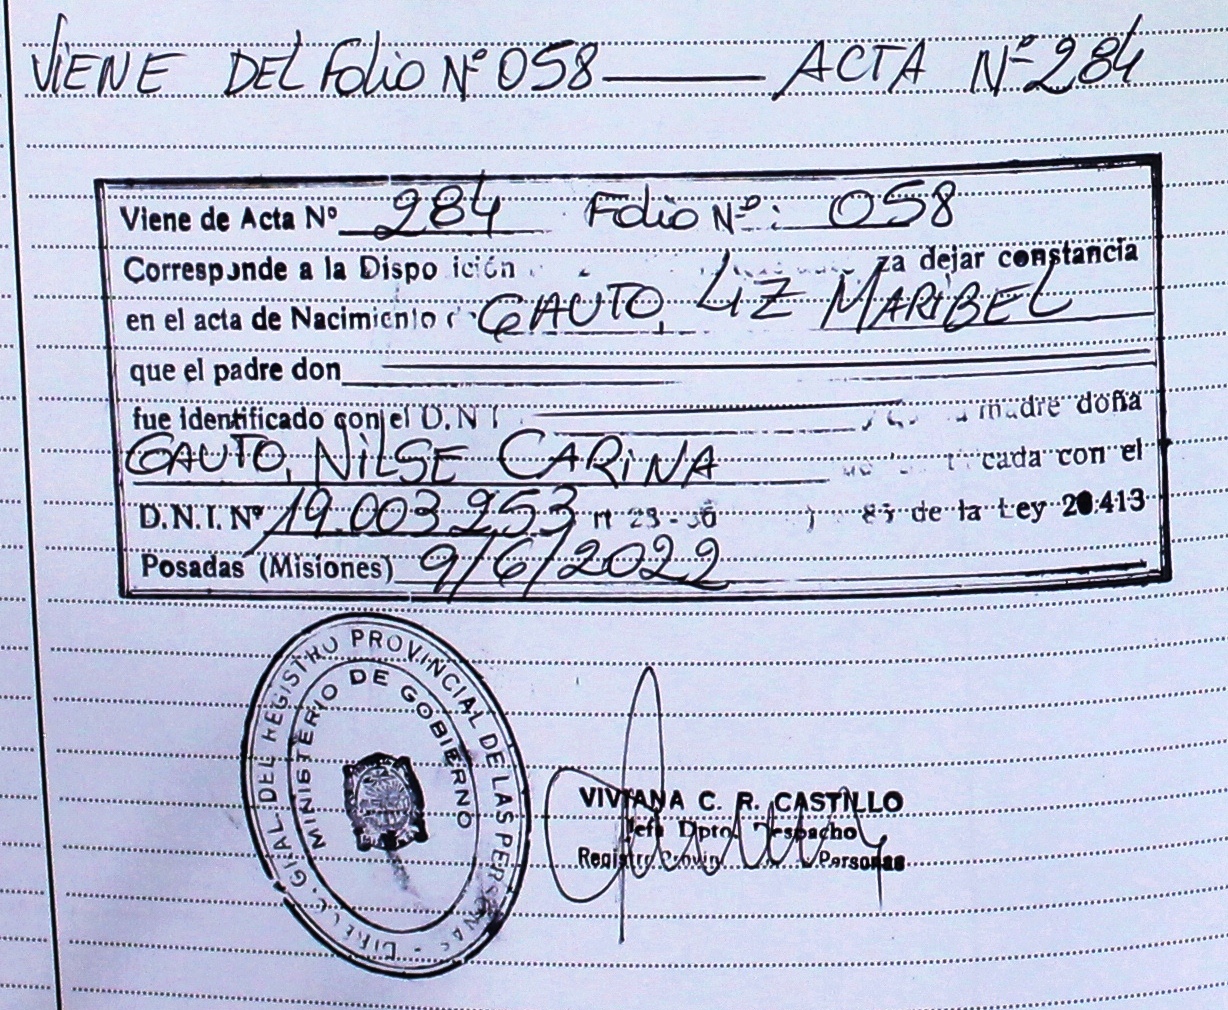 VIENE DEL Folio Nº 058 ACTA Nº 284
Viene de Acta Nº 284 Folio Nº: 058
Corresponde a la Dispo ición za dejar constancia
en el acta de Nacimiento GAUTO, LIZ MARIBEL
que el padre don
fue identificado con el D.N.I. madre doña
GAUTO, NILSE CARINA cada con el
D.N.I. Nº 19.003.953 de la Ley 20.413
Posadas (Misiones) 9/6/2022
DIRECC. GRAL. DEL REGISTRO PROVINCIAL DE LAS PERSONAS
MINISTERIO DE GOBIERNO
VIVIANA C. R. CASTILLO
Jefa Dpto. Despacho
Registro Personas